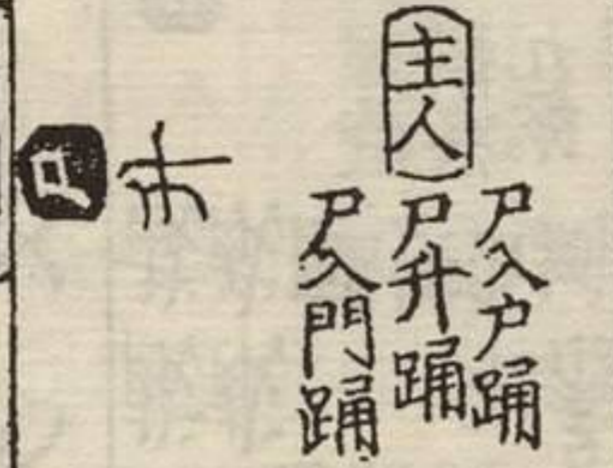 主人
尸入户踊
尸升踊
尸入門踊